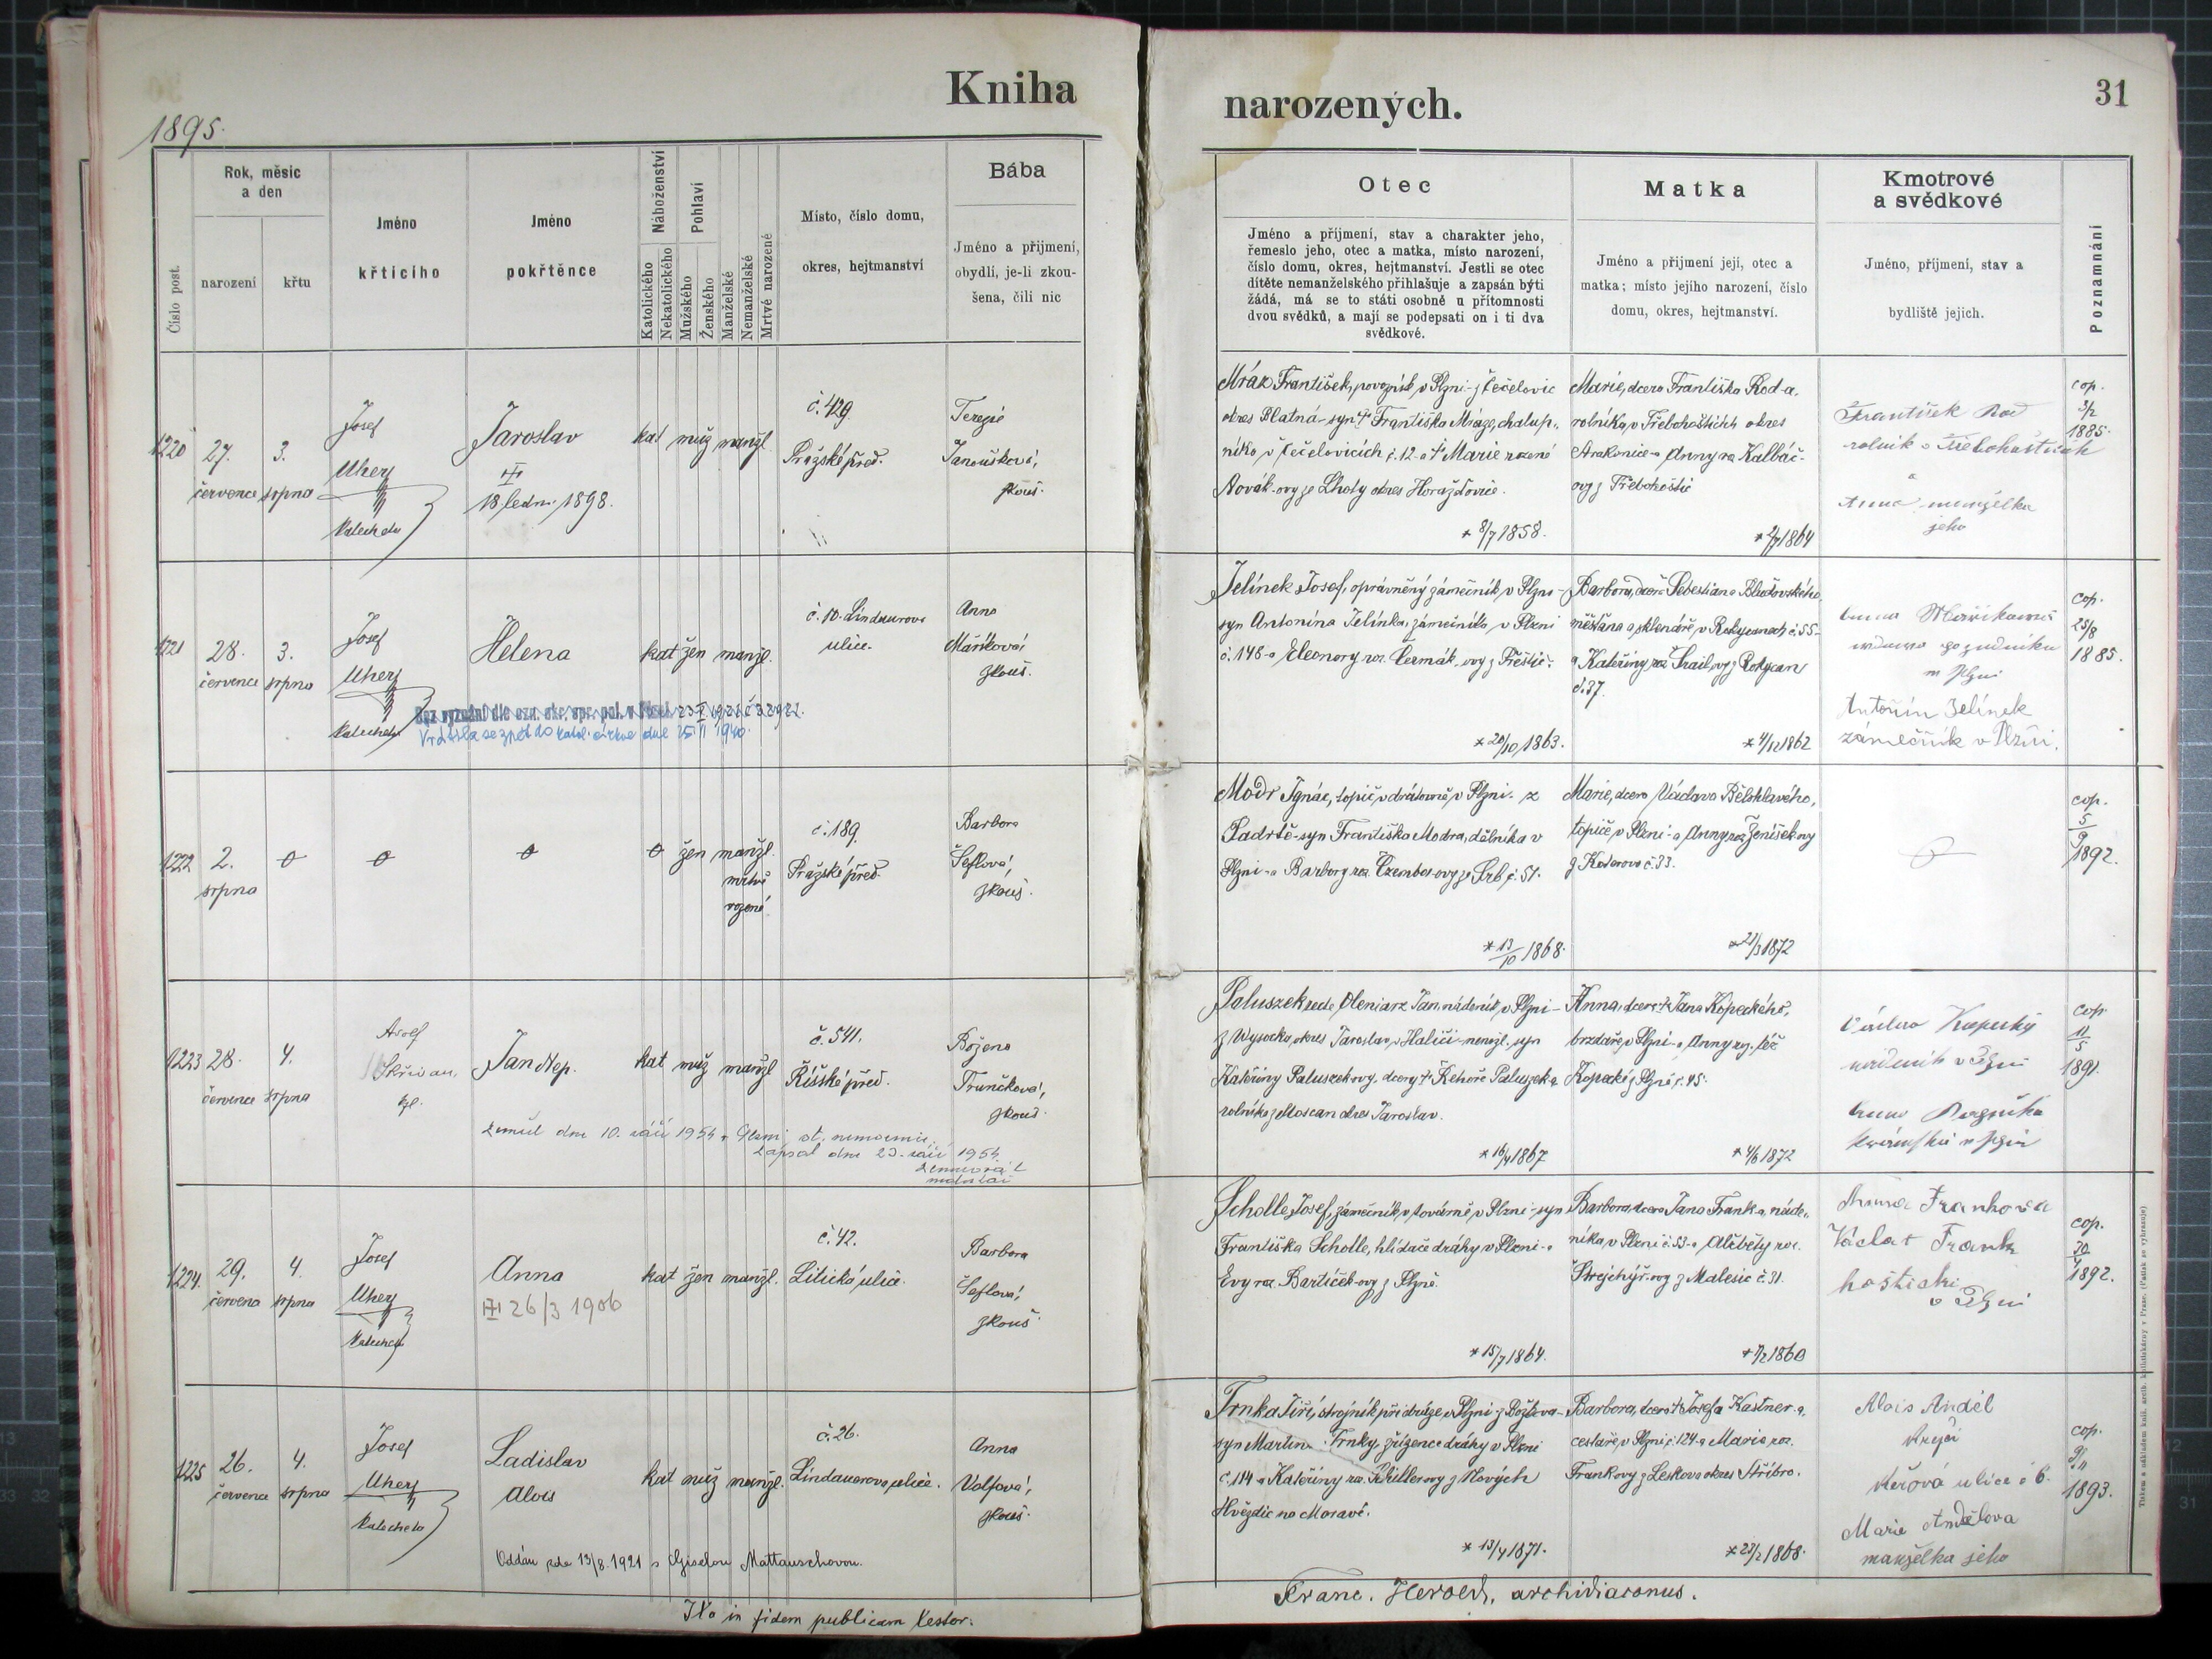 Kniha
narozených.
31
1895.
Číslo post.
Rok, měsíc
a den
narození
křtu
Jméno
křticího
Jméno
pokřtěnce
Náboženství
Katolického
Nekatolického
Pohlaví
Mužského
Ženského
Manželské
Nemanželské
Mrtvé narozené
Místo, číslo domu,
okres, hejtmanství
Bába
Jméno a přijmení,
obydlí, je-li zkou-
šena, čili nic
Otec
Jméno a příjmení, stav a charakter jeho,
řemeslo jeho, otec a matka, místo narození,
číslo domu, okres, hejtmanství. Jestli se otec
dítěte nemanželského přihlašuje a zapsán býti
žádá, má se to státi osobně u přítomnosti
dvou svědků, a mají se podepsati on i ti dva
svědkové.
Matka
Jméno a přijmení její, otec a
matka; místo jejího narození, číslo
domu, okres, hejtmanství.
Kmotrové
a svědkové
Jméno, příjmení, stav a
bydliště jejich.
Poznamnání
1220
27.
července
3.
srpna
Josef
Uherz
Katecheta
Jaroslav
18. ledn. 1898.
kat muž manžl.
č. 429.
Pražské před.
Terezie
Janoušková,
zkouš.
Mráz František, povozník v Plzni - z Čečelovic
okres Blatná - syn † Františka Mráze, chalup.
níka v Čečelovicích č. 12 a † Marie rozené
Novák-ovy ze Lhoty okres Horažďovice.
* 8/7 1858.
Marie, dcera Františka Rod-a,
rolníka v Třebohosticích okres
Strakonice a Anny roz. Kalbáč-
ovy z Třebohostic
1864
František Rod
rolník v Třebohosticích
a
Anna manželka
jeho
cop.
3/2
1885.
1221
28.
července
3.
srpna
Josef
Uherz
Katecheta
Helena
kat žen manžl.
č. 10. Lindauerova
ulice.
Anna
Maříková,
zkouš.
Vrátila se zpět do katol. církve dne 25/II 1940.
Jelínek Josef, oprávněný zámečník v Plzni -
syn Antonína Jelínka, zámečníka v Plzni
č. 148 a Eleonory roz. Čermák-ovy z Přeštic.
* 20/10 1863.
Barbora, dcera Šebestiana
měšťana a sklenáře v Rokycanech č. 55
a Kateřiny roz.
č. 37.
* 4/12 1862
Antonín Jelínek
zámečník v Plzni.
cop.
25/8
1885.
1222
2.
srpna
žen manžl.
mrtvě
rozené
č. 189.
Pražské před.
Barbora
Šeflová,
zkouš.
Modr Ignác, topič v drátovně v Plzni - z
Padrtě - syn Františka Modra, dělníka v
Plzni - a Barbory roz. Czembor-ovy ze Srb č. 51.
* 13/10 1868.
Marie, dcera Václava Bělohlavého,
topiče v Plzni - a Anny roz. Ženíšek-ovy
z Kotorova č. 33.
1872
cop.
5
9
1892.
1223
28.
července
4.
srpna
Skřivan,
kpl.
Jan Nep.
kat muž manžl
č. 541.
Říšské před.
Božena
Trunčková,
zkouš.
zemřel dne 10. září 1954 v Plzni, st. nemocnice.
Zapsal dne 23. září 1954.
Paluszek recte Oleniarz Jan, nádeník v Plzni -
z Wysocka, okres Jaroslav v Haliči - nemžl. syn
Kateřiny Paluszekovy, dcery † Řehoře Paluszek-a
rolníka z Moscan okres Jaroslav.
* 16/4 1867
Anna, dcera † Jana Kopeckého,
brzdaře v Plzni - a Anny roz. též
Kopecké z Plzně č. 45.
* 4/6 1872
Václav Kopecký
v Plzni
cop.
11
5
1891.
1224.
29.
července
4.
srpna
Josef
Uherz
Katecheta
Anna
26/3 1906
kat žen manžl.
č. 42.
Litická ulice.
Barbora
Šeflová,
zkouš.
Scholle Josef, zámečník v továrně v Plzni - syn
Františka Scholle, hlídače dráhy v Plzni - a
Evy roz. Bartíček-ovy z Plzně.
* 15/7 1864.
Barbora, dcera Jana Frank-a, náde-
níka v Plzni č. 53 - a Alžběty roz.
Strejchýř-ovy z Malesic č. 31.
1860
Anna Frankova
Václav Frank
hostinský
v Plzni
cop.
1892.
1225
26.
července
4.
srpna
Josef
Uherz
Katecheta
Ladislav
Alois
kat muž manžl.
č. 26.
Lindauerova ulice.
Anna
Volfová,
zkouš.
Oddán zde 13/8. 1921 s Giselou Mattauschovou.
Trnka Jiří, strojník při dráze v Plzni z Božkova -
syn Martina Trnky, zřízence dráhy v Plzni
č. 114 a Kateřiny roz. Schillerovy z Nových
Hvězdlic na Moravě.
* 13/4 1871.
Barbora, dcera † Josefa Kastner-a,
cestáře v Plzni č. 124 a Marie roz.
Frankovy z Leskova okres Stříbro.
* 23/2 1868.
Alois Anděl
krejčí
ulice č 6.
Marie Andělova
manželka jeho
cop.
9/11
1893.
Ita in fidem publicam testor:
Franc. Herold, archidiaconus.